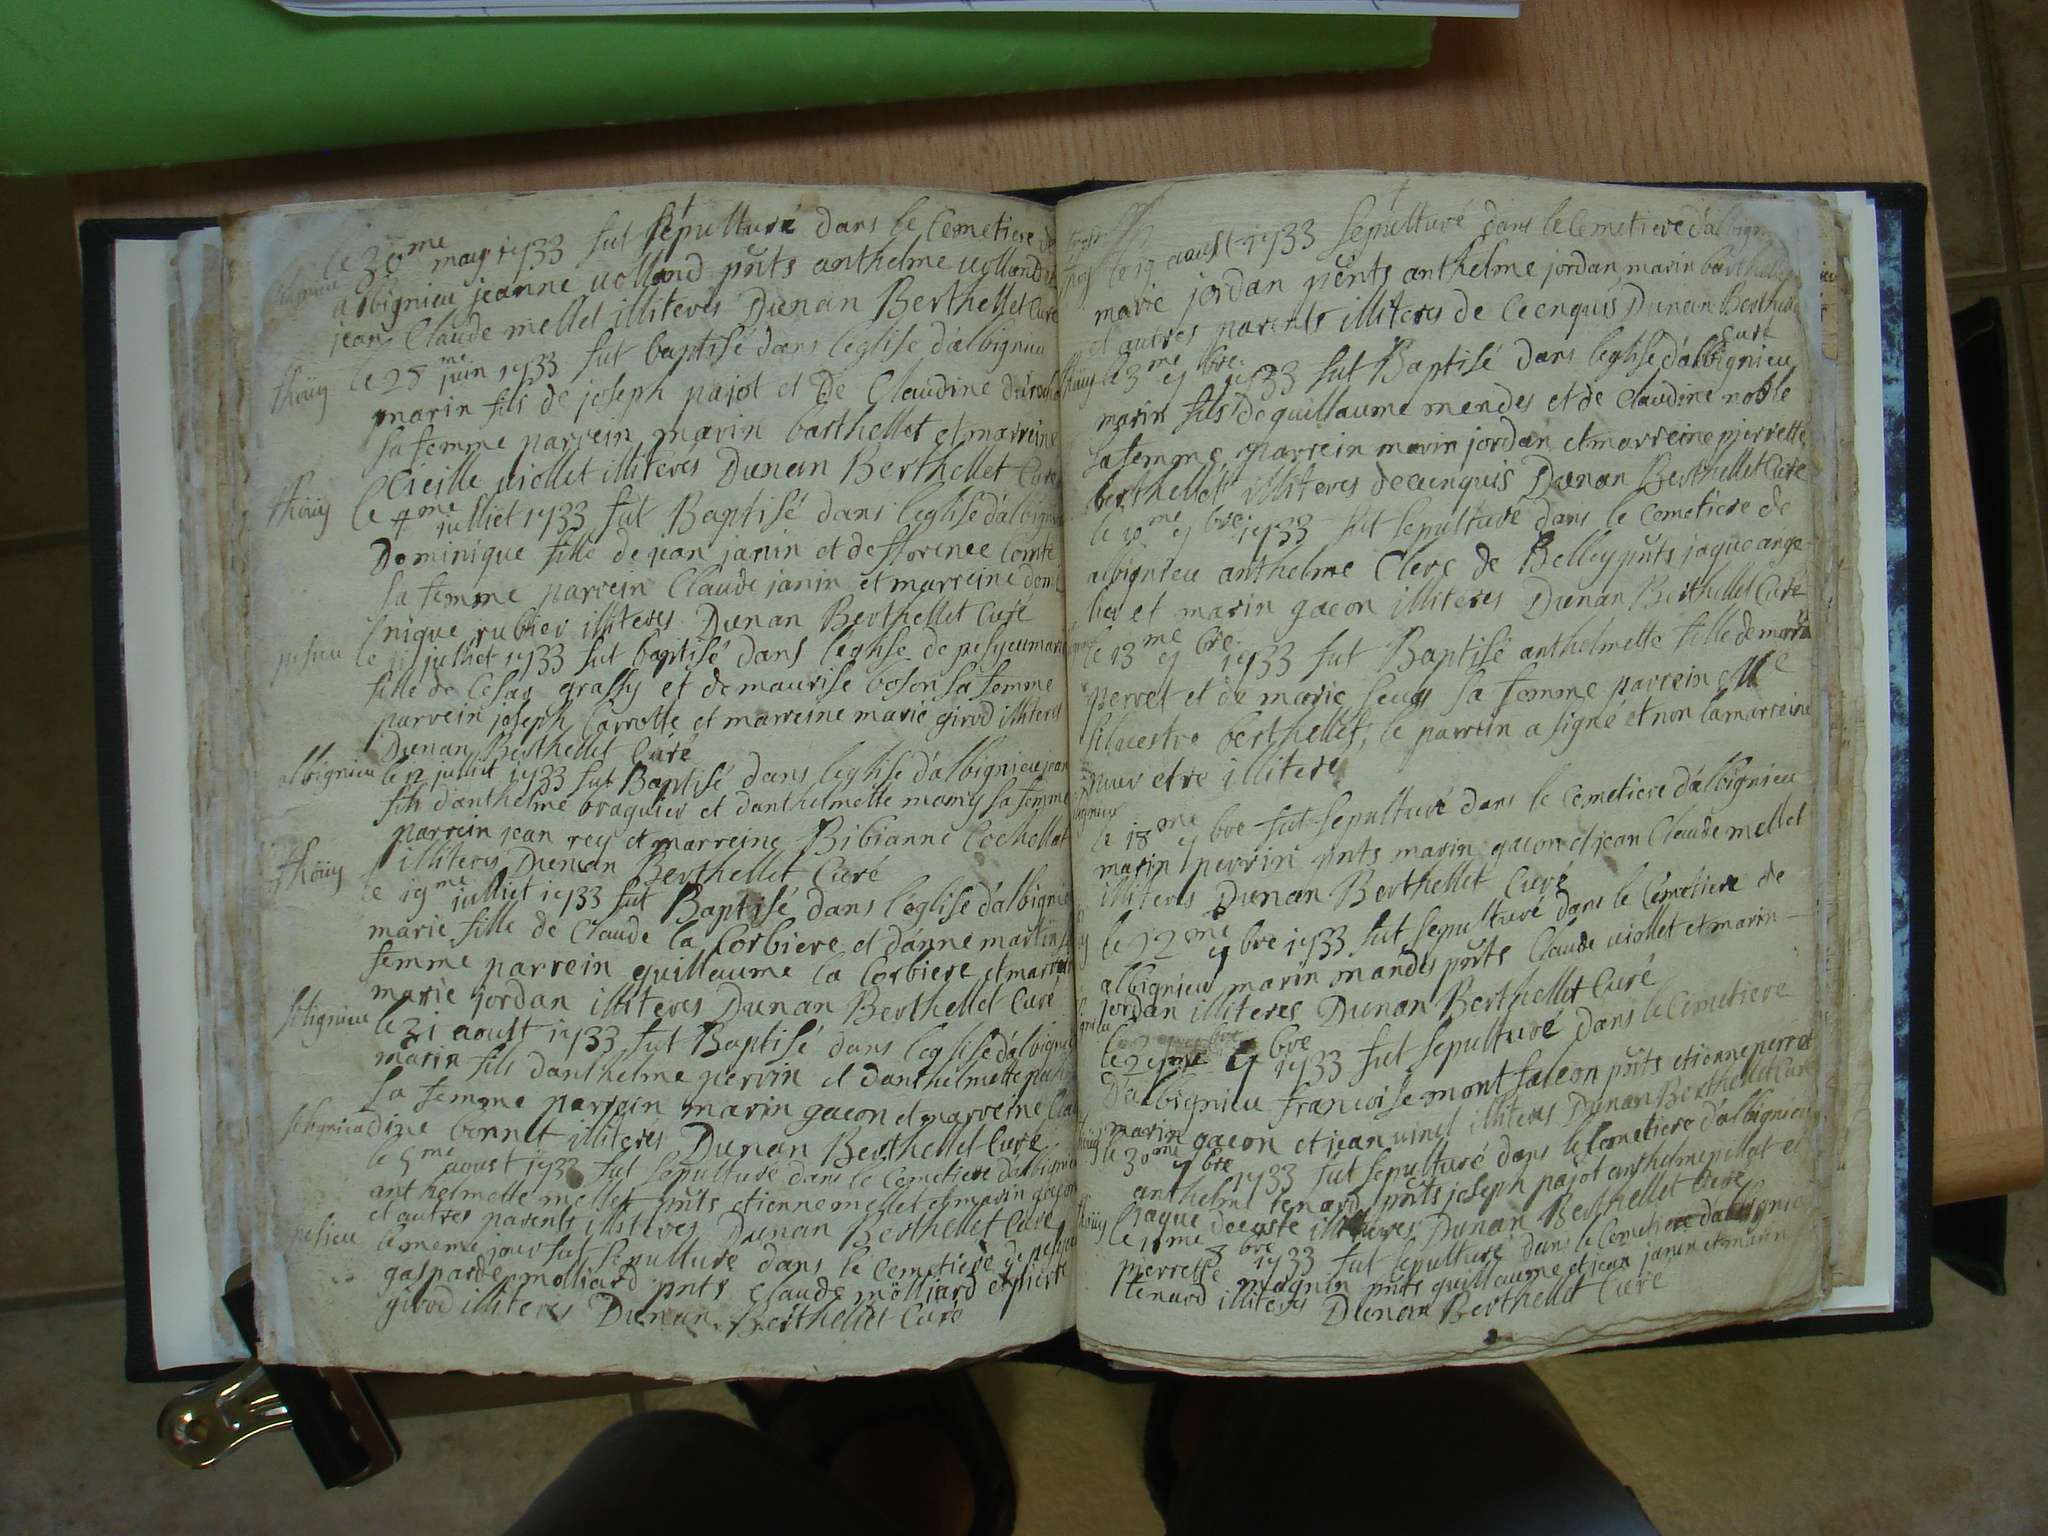 albignieu le 30me may 1733 fut sepulturé dans le Cemetiere de
albignieu jeanne volland pnts anthelme volland et
jean Claude mellet illiteres Dunan Berthellet Curé
thöuy le 28me juin 1733 fut baptisé dans leglise d'albignieu
marin fils de joseph pajot et De Claudine
sa femme parrein marin barthellet et marreine
violliet illiteres Dunan Berthellet Curé
thöuy le 4me julliet 1733 fut Baptisé dans leglise d'albignieu
Dominique fille de jean janin et de fflorence Comte
sa femme parrein Claude janin et marreine domi
nique rubier illiteres Dunan Berthellet Curé
pesieu le julliet 1733 fut baptisé dans leglise de pesyeu marie
fille de Cesar grassy et de maurise boson sa femme
parrein joseph Carrotte et marreine marie girod illiteres
Dunan Berthellet Curé
albignieu le 12 julliet 1733 fut Baptisé dans leglise d'albignieu jean
fils d'anthelme braquier et d'anthelmette mamy sa femme
parrein jean rey et marreine Bibianne Cochollat
illiteres Dunan Berthellet Curé
thöuy le 19me julliet 1733 fut Baptisé dans leglise d'albignieu
marie fille de Claude la Corbiere et d'anne martin sa
femme parrein guillaume la Corbiere et marreine
marie jordan illiteres Dunan Berthellet Curé
sillignieu le 31 aoust 1733 fut Baptisé dans leglise d'albignieu
marin fils d'anthelme perrin et d'anthelmette
sa femme parrein marin gacon et marreine Clau
sillignieu dine bonnet illiteres Dunan Berthellet Curé
le 5me aoust 1733 fut sepulturé dans le Cemetiere d'albignieu
anthelmette mellet pnts etienne mellet et marin gacon
et autres parents illiteres Dunan Berthellet Curé
pesieu le meme jour fut sepulturé dans le Cemetiere de pesyeu
gasparde molliard pnts Claude mölliard et pierre
girod illiteres Dunan Berthellet Curé
le 19 aoust 1733 sepulturé dans le Cemetiere d'albignieu
marie jordan pënts anthelme jordan marin barthellet
et autres parents illiteres de ce enquis Dunan Berthellet
Curé
thöuy le 3me 7bre 1733 fut Baptisé dans leglise d'albignieu
marin fils de guillaume mendes et de Claudine noble
sa femme parrein marin jordan et marreine pierrette
berthellet illiteres de ce enquis Dunan Berthellet Curé
le 10me 7bre 1733 fut sepulturé dans le Cemetiere de
albignieu anthelme Clerc de Belley pnts jaque ange
lier et marin gacon illiteres Dunan Berthellet Curé
le 13me 7bre 1733 fut Baptisé anthelmette fille de marin
perret et de marie sa femme parrein Mre
silvestre berthellet, le parrein a signé et non la marreine
pour etre illitere
le 18me 7bre fut sepulturé dans le Cemetiere d'albignieu
marin perrin pnts marin gacon et jean Claude mellet
illiteres Dunan Berthellet Curé
le 22me 7bre 1733 fut sepulturé dans le Cemetiere de
albignieu marin mandes pnts Claude viollet et marin
jordan illiteres Dunan Berthellet Curé
le 7bre 1733 fut sepulturé dans le Cemetiere
D'albignieu francoise montfalcon pnts etienne perret
marin gacon et jean vinet illiteres Dunan Berthellet Curé
le 30me 7bre 1733 fut sepulturé dans le Cemetiere d'albignieu
anthelme tenard pnts joseph pajot anthelme pillat et
jaque decoste illiteres Dunan Berthellet Curé
thöuy le 8bre 1733 fut sepulturé dans le Cemetiere d'albignieu
pierrette magnin pnts guillaume et jean janin et marin
tenard illiteres Dunan Berthellet Curé